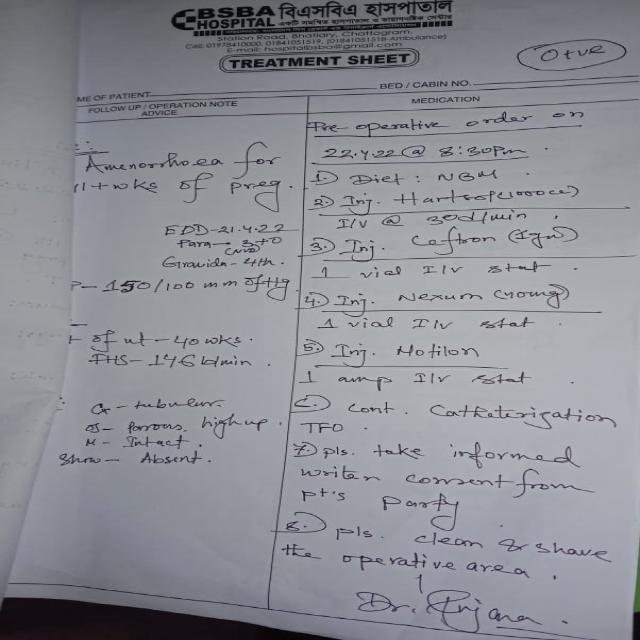 CBSBA বিএসবিএ হাসপাতাল
HOSPITAL একটি সমন্বিত হাসপাতাল ও ডায়াগনস্টিক সেন্টার
Station Road, Bhatiary, Chattogram.
Cell: 01978410000, 01841051519, (01841051518-Ambulance)
E-mail: hospitalbsba@gmail.com
TREATMENT SHEET
O+ve
ME OF PATIENT
BED / CABIN NO.
FOLLOW UP / OPERATION NOTE
ADVICE
Amenorrhoea for
1+wks of preg.
EDD-21.4.22
Para - 3+0
Gravida - 4th.
P-150/100 mm of Hg
of ut - 40 wks.
FHS - 146 b/min.
Cx - tubular.
OS - Porous. high up.
M - Intact.
Show - Absent.
MEDICATION
Pre operative order on
22.4.22 @ 8:30pm.
1) Diet: NBM
2) Inj. Hartsol (1000cc)
I/V @ 30d/min.
3) Inj. Ceftron (1gm)
1 vial I/V stat.
4) Inj. Nexum (40mg)
1 vial I/V stat.
5) Inj. Motilon
1 amp I/V stat.
6) cont. Catheterization
TFO
7) pls. take informed
writen consent from
pt's party
8) pls. clean & shave
the operative area.
Dr.